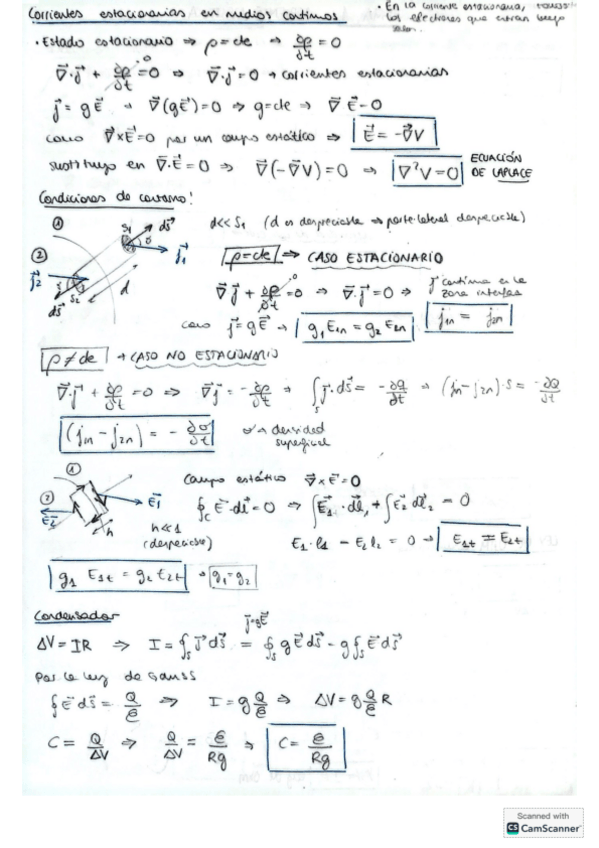 Corrientes estacionarias en medios continuos
• En la corriente estacionaria,
los electrones que entran luego
salen.
• Estado estacionario ⇒ ρ=cte ⇒ ∂ρ/∂t = 0
∇·j + ∂ρ/∂t = 0 ⇒ ∇·j = 0 → corrientes estacionarias
j = gE → ∇(gE) = 0 ⇒ g=cte ⇒ ∇E = 0
como ∇×E=0 por un campo estático ⇒ E = -∇V
sustituyo en ∇·E = 0 ⇒ ∇(-∇V) = 0 ⇒ ∇²V = 0 ECUACIÓN DE LAPLACE
Condiciones de contorno:
① S1 dS j1
② j2 S2 dS d
d<<S1 (d es despreciable ⇒ parte lateral despreciable)
ρ=cte ⇒ CASO ESTACIONARIO
∇j + ∂ρ/∂t = 0 ⇒ ∇·j = 0 ⇒ j continua en la zona interfase
como j = gE → g1 E1n = g2 E2n j1n = j2n
ρ ≠ cte → CASO NO ESTACIONARIO
∇·j + ∂ρ/∂t = 0 ⇒ ∇j = -∂ρ/∂t → ∫S j·ds = -∂q/∂t → (j1n - j2n)·S = -∂Q/∂t
(j1n - j2n) = -∂σ/∂t σ → densidad superficial
① E1
② E2 h
h<<1
(despreciable)
Campo estático ∇×E = 0
∮C E·dl = 0 ⇒ ∫E1·dl1 + ∫E2 dl2 = 0
E1·l1 - E2 l2 = 0 → E1t = E2t
g1 E1t = g2 E2t → g1=g2
Condensador
j=gE
ΔV = IR ⇒ I = ∮S j ds = ∮S gE ds = g∮S E ds
Por la ley de Gauss
∮E ds = Q/ε ⇒ I = g Q/ε ⇒ ΔV = g Q/ε R
C = Q/ΔV ⇒ Q/ΔV = ε/Rg ⇒ C = ε/Rg
Scanned with
CS CamScanner